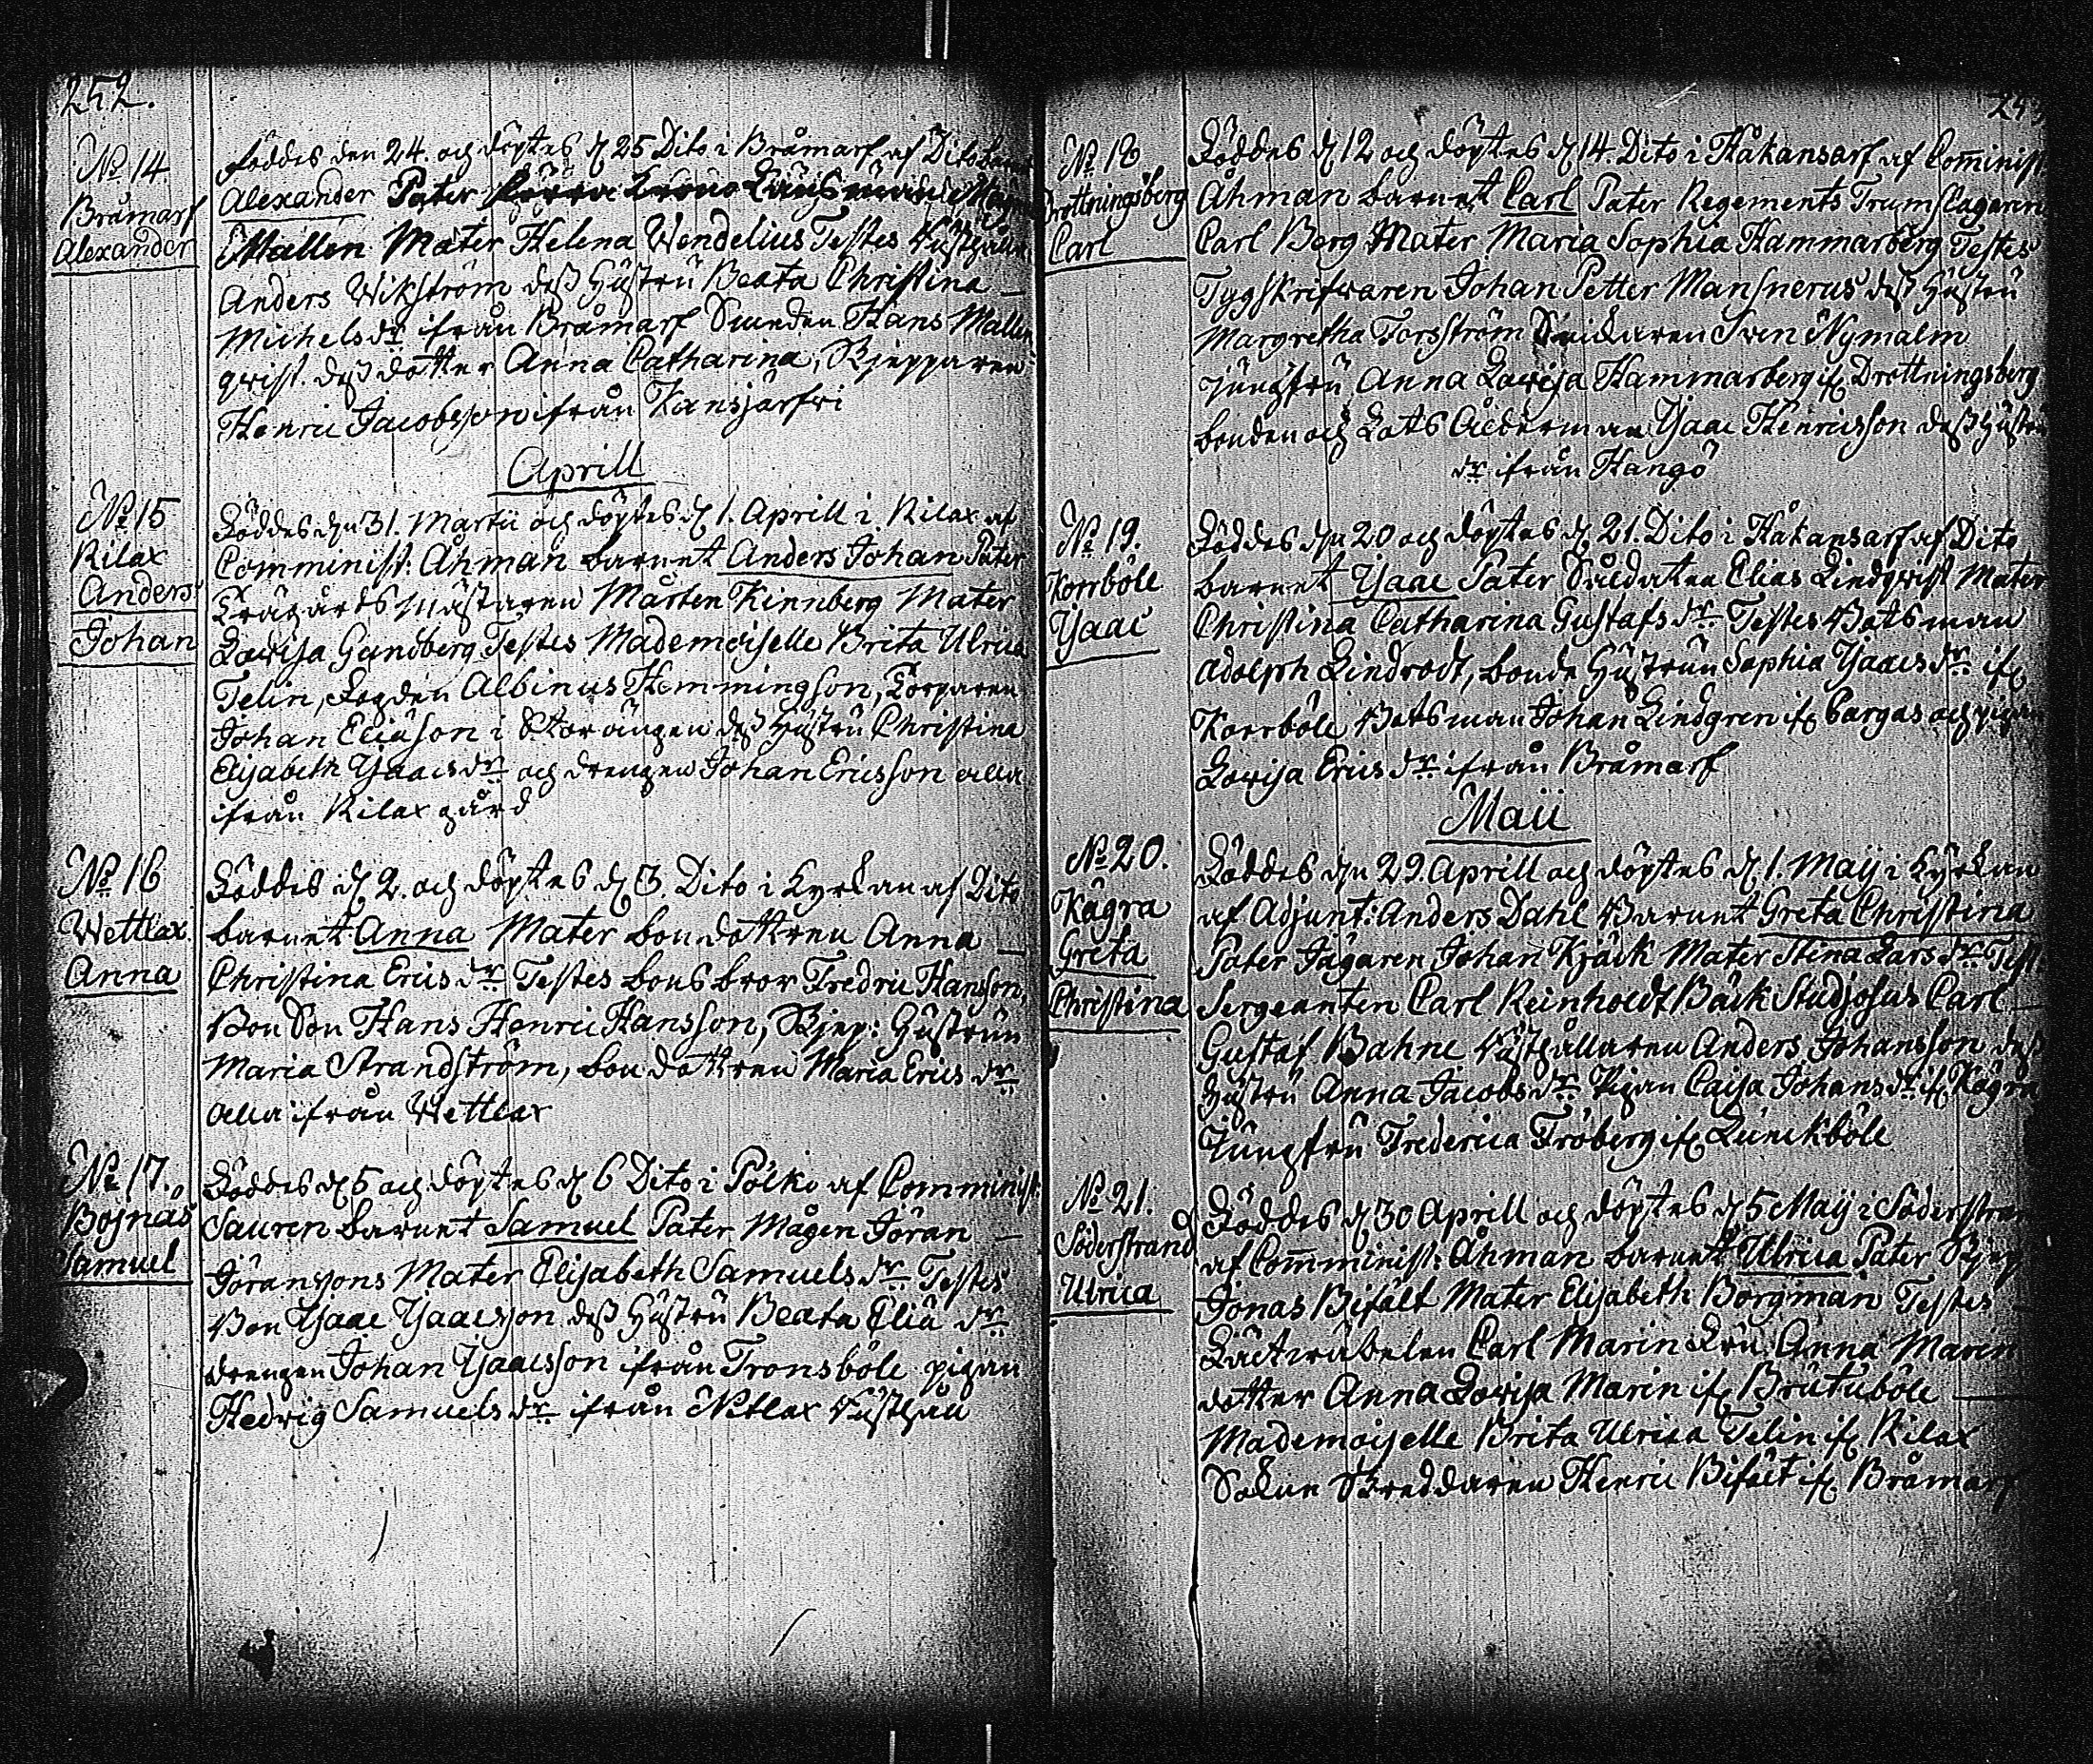 252.
No 14
Bråmarf
Alexander
föddes den 24. och döptes d 25 Dito i Bråmarf af Dito
Alexander Pater
Mallen Mater Helena Wendelius Testes
Anders Wikström dess hustru Beata Christina
Michelsdr ifrån Bråmarf Smeden Hans Mallen
qvist. dess dotter Anna Catharina, Skepparen
Henric Jacobsson ifrån Kansjärfvi
Aprill
No 15
Rilax
Anders
Johan
Föddes den 31. Martii och döptes d 1. Aprill i Rilax af
Comminist: Åhman barnet Anders Johan Pater
Trägårdsmästaren Mårten Kinnberg Mater
Lovisa Gundberg Testes Mademoiselle Brita Ulrica
Telin, Fogden Albinus Hemmingson, Torparen
Johan Eliäson i Storängen dess hustru Christina
Elisabeth Isaacsdr och drengen Johan Ericsson alla
ifrån Rilax gård
No 16
Wettlax
Anna
Föddes d 2. och döptes d 3. Dito i Kyrkan af Dito
barnet Anna Mater bondottren Anna
Christina Ericsdr Testes bonsbror Fredric Hansson,
Bonson Hans Henric Hansson, Skep: Hustrun
Maria Strandström, bondottren Maria Ericsdr
alla ifrån Wettlax
No 17.
Bojnäs
Samuel
Föddes d 5 och döptes d 6 Dito i Pölko af Comminist:
Sauren barnet Samuel Pater Mågen Jöran
Jöranssons Mater Elisabeth Samuelsdr Testes
Bon Isaac Isaacsson dess hustru Beata Eliädr
drengen Johan Isaacsson ifrån Tronsböle pigan
Hedvig Samuelsdr ifrån Nitlax
No 18
Drottningsberg
Carl
Föddes d 12 och döptes d 14. Dito i Håkansarf af Comminist
Åhman barnet Carl Pater Regements Trumslagaren
Carl Berg Mater Maria Sophia Hammarberg Testes
Tygskrifvaren Johan Petter Mansnerus dess hustru
Margretha Forsström Snickaren Sven Nymalm
jungfru Anna Lovisa Hammarberg if Drottningsberg
bonden och Lots Ålderman Isaac Henricsson dess hustru
dr ifrån Hangö
No 19.
Korrböle
Isaac
Föddes den 20 och döptes d 21. Dito i Håkansarf af Dito
barnet Isaac Pater Soldaten Elias Lindqvist Mater
Christina Catharina Gustafsdr Testes Botsman
Adolph Lindrodt, bonde hustrun Sophia Isaacsdr if
Korrböle Botsman Johan Lindgren if Pargas och pigan
Lovisa Ericsdr ifrån Bråmarf
Maii
No 20.
Kägra
Greta
Christina
Föddes den 29. Aprill och döptes d 1. Maij i Kyrkan
af Adjunt: Anders Dahl Barnet Greta Christina
Pater Jägaren Johan Kjäck Mater Stina Larsdr Test
Sergeanten Carl Reinholdt Bäck Studjosus Carl
Gustaf Bahne Rusthållaren Anders Johansson dess
hustru Anna Jacobsdr Pigan Caisa Johansdr if Kägra
Jungfru Fredrica Fröberg if Kunickböle
No 21.
Söderstrand
Ulrica
Föddes d 30 Aprill och döptes d 5 Maij i Söderstran
af Comminist: Åhman barnet Ulrica Pater Skep
Jonas Bifält Mater Elisabeth Borgman Testes
Carl Marin Fru Anna Marin
dotter Anna Lovisa Marin if Brutuböle
Mademoiselle Brita Ulrica Telin if Rilax
Sockne Skreddaren Henric Bifält if Bråmarf